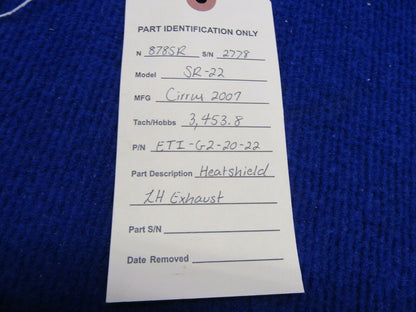 PART IDENTIFICATION ONLY
N 878SR S/N 2778
Model SR-22
MFG Cirrus 2007
Tach/Hobbs 3,453.8
P/N ETI-G2-20-22
Part Description Heatshield
LH Exhaust
Part S/N
Date Removed